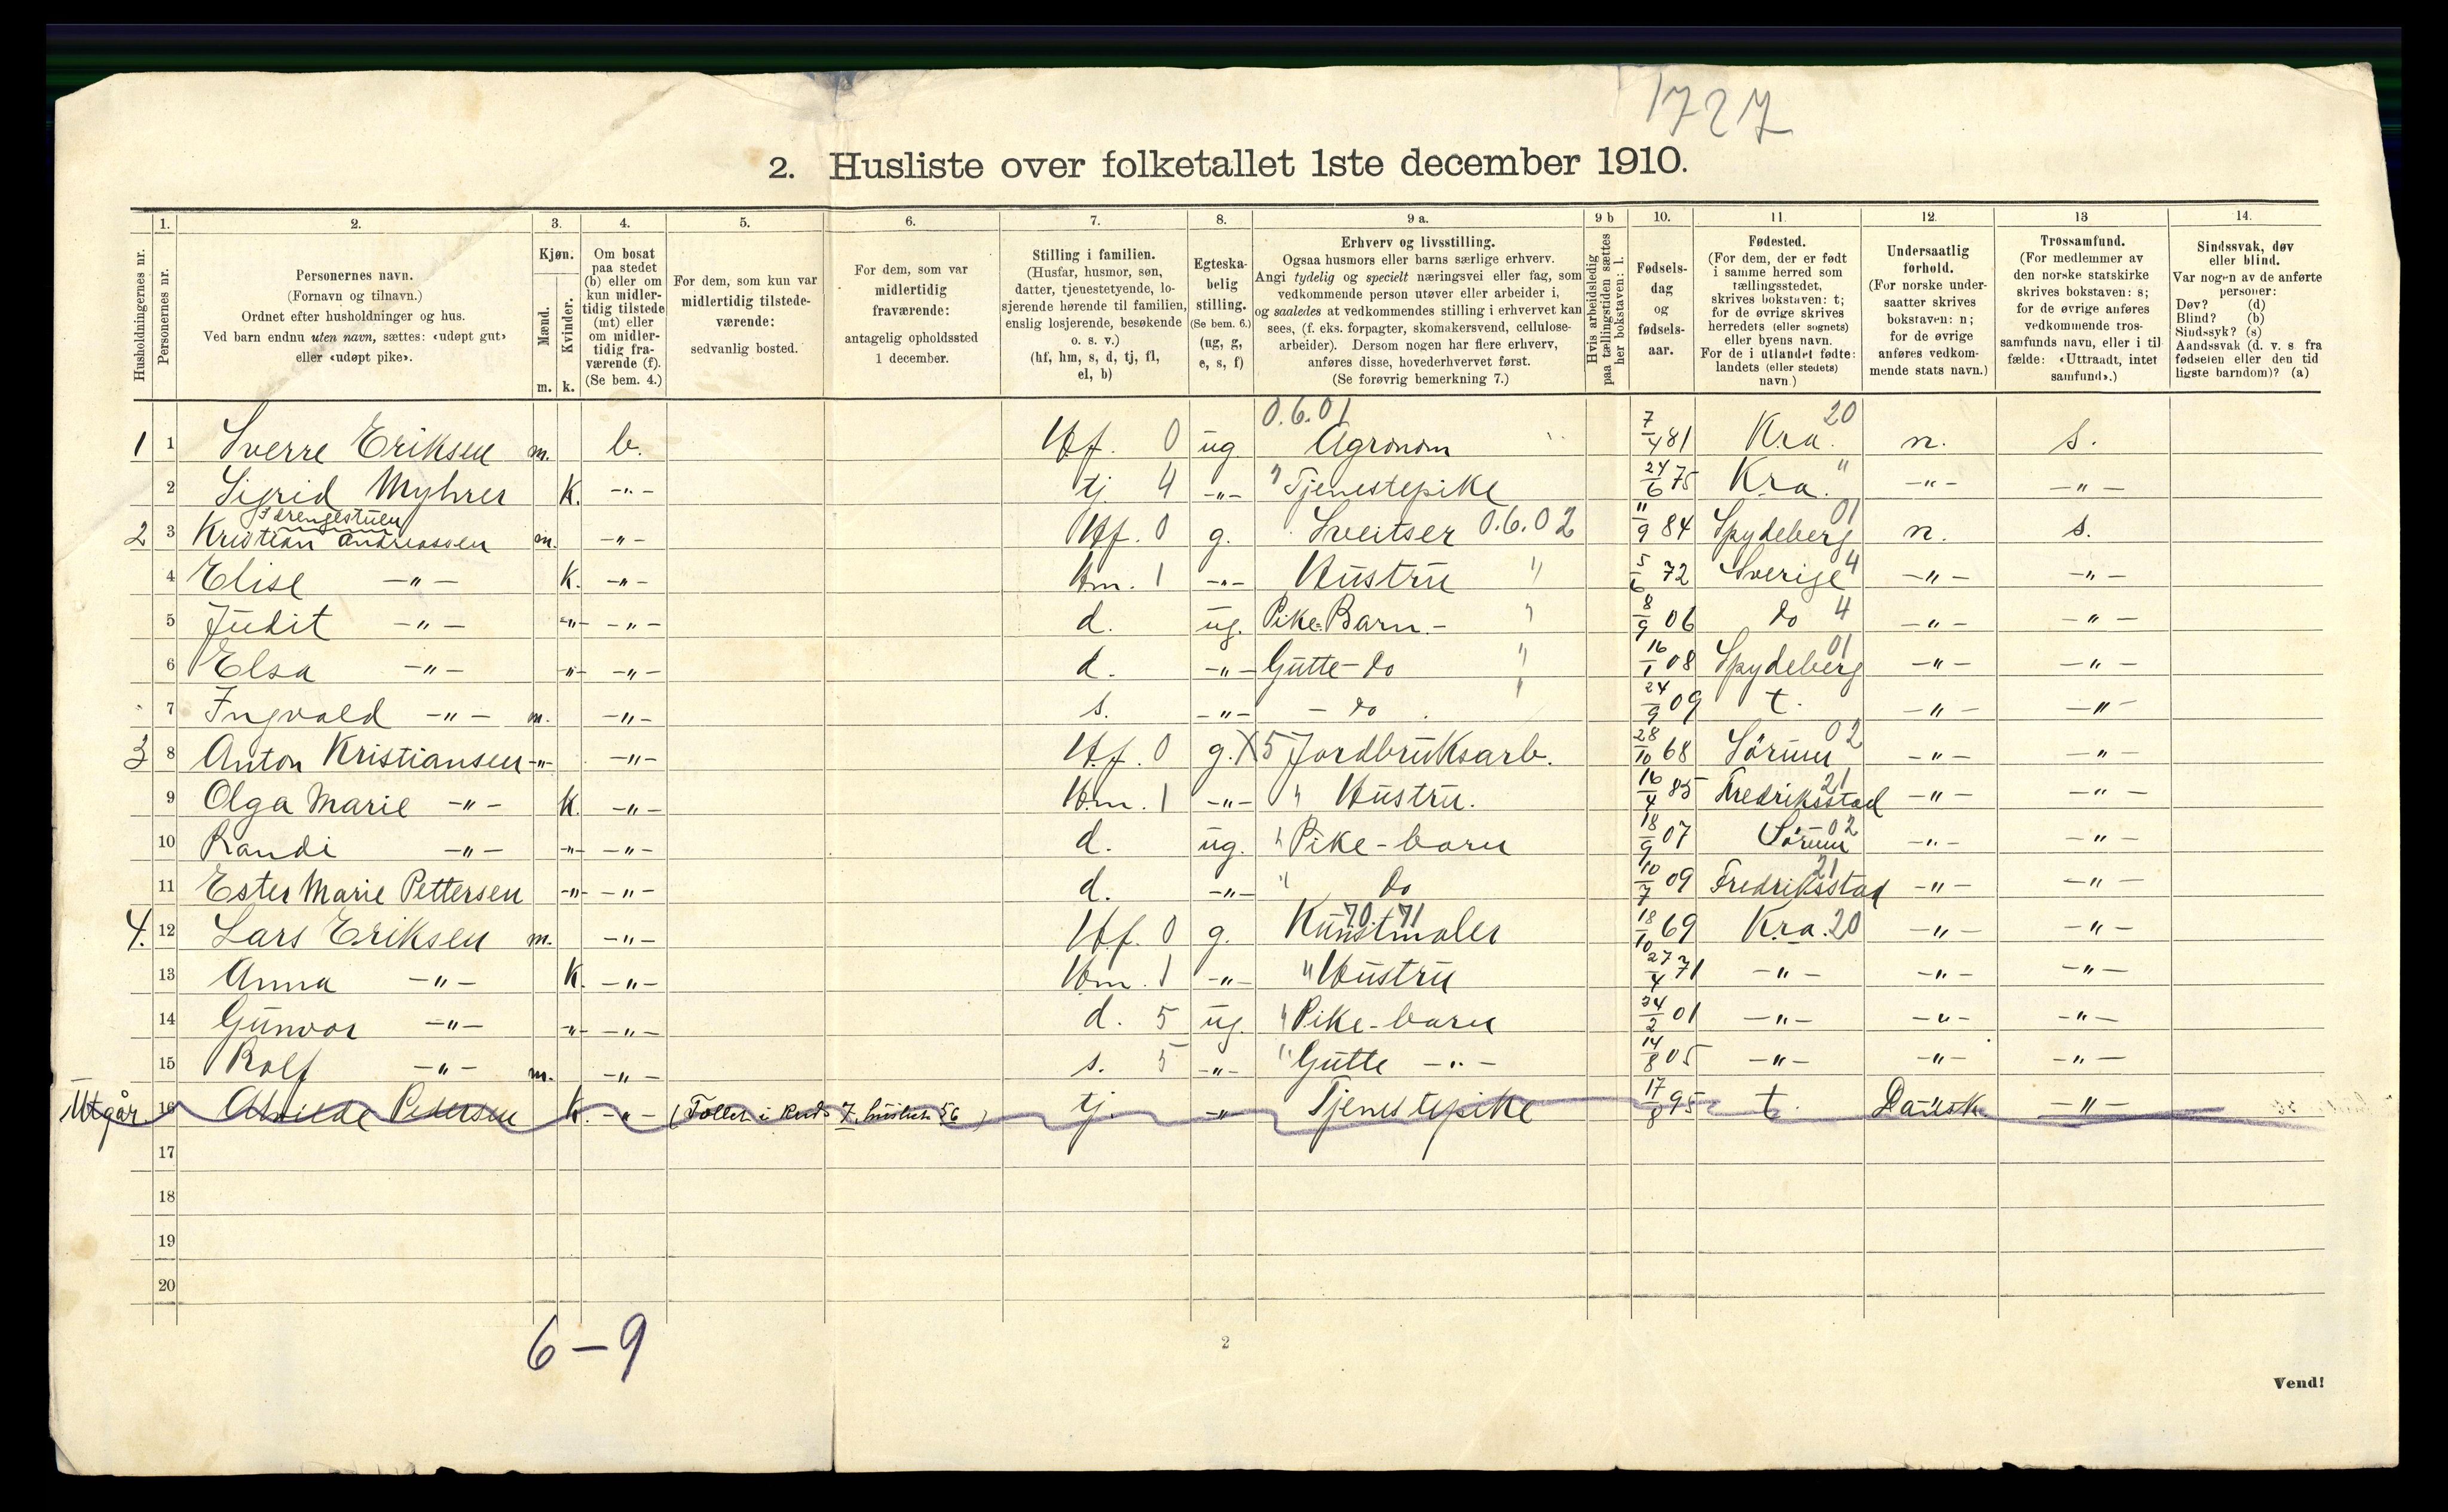 1727
2. Husliste over folketallet 1ste december 1910.
Husholdningernes nr.
1. Personernes nr.
2. Personernes navn. (Fornavn og tilnavn.) Ordnet efter husholdninger og hus. Ved barn endnu uten navn, sættes: «udøpt gut» eller «udøpt pike».
3. Kjøn. Mænd. m. Kvinder. k.
4. Om bosat paa stedet (b) eller om kun midlertidig tilstede (mt) eller om midlertidig fraværende (f). (Se bem. 4.)
5. For dem, som kun var midlertidig tilstedeværende: sedvanlig bosted.
6. For dem, som var midlertidig fraværende: antagelig opholdssted 1 december.
7. Stilling i familien. (Husfar, husmor, søn, datter, tjenestetyende, losjerende hørende til familien, enslig losjerende, besøkende o. s. v.) (hf, hm, s, d, tj, fl, el, b)
8. Egteskabelig stilling. (Se bem. 6.) (ug, g, e, s, f)
9 a. Erhverv og livsstilling. Ogsaa husmors eller barns særlige erhverv. Angi tydelig og specielt næringsvei eller fag, som vedkommende person utøver eller arbeider i, og saaledes at vedkommendes stilling i erhvervet kan sees, (f. eks. forpagter, skomakersvend, cellulosearbeider). Dersom nogen har flere erhverv, anføres disse, hovederhvervet først. (Se forøvrig bemerkning 7.)
9 b Hvis arbeidsledig paa tællingstiden sættes her bokstaven: l.
10. Fødselsdag og fødselsaar.
11. Fødested. (For dem, der er født i samme herred som tællingsstedet, skrives bokstaven: t; for de øvrige skrives herredets (eller sognets) eller byens navn. For de i utlandet fødte: landets (eller stedets) navn.)
12. Undersaatlig forhold. (For norske undersaatter skrives bokstaven: n; for de øvrige anføres vedkommende stats navn.)
13 Trossamfund. (For medlemmer av den norske statskirke skrives bokstaven: s; for de øvrige anføres vedkommende trossamfunds navn, eller i tilfælde: «Uttraadt, intet samfund».)
14. Sindssvak, døv eller blind. Var nogen av de anførte personer: Døv? (d) Blind? (b) Sindssyk? (s) Aandssvak (d. v. s fra fødselen eller den tidligste barndom)? (a)
1 1 Sverre Eriksen m. b. Hf. 0 ug 0.6.01 Agronom 7/4 81 Kra. 20 n. s.
2 Sigrid Myhrer K. -"- tj 4 -"- " Tjenestepike 24/6 75 Kra. " -"- -"-
I drengestuen
2 3 Kristian Andreassen m. -"- Hf. 0 g. Sveitser 0.6.02 11/9 84 Spydeberg 01 n. s.
4 Elise -"- K. -"- Hm. 1 -"- Hustru " 5/6 72 Sverige 4 -"- -"-
5 Judit -"- -"- -"- d. ug. Pike-Barn.- " 8/9 06 do 4 -"- -"-
6 Elsa -"- -"- -"- d. -"- Gutte-do " 16/1 08 Spydeberg 01 -"- -"-
7 Ingvald -"- m. -"- s. -"- - do " 24/9 09 t. -"- -"-
3 8 Anton Kristiansen -"- -"- Hf. 0 g. X5 Jordbruksarb. 28/10 68 Sörum 02 -"- -"-
9 Olga Marie -"- K. -"- Hm. 1 -"- " Hustru. 16/4 85 Fredriksstad 21 -"- -"-
10 Randi -"- -"- -"- d. ug. " Pike-barn 18/9 07 Sörum 02 -"- -"-
11 Ester Marie Pettersen -"- -"- d. -"- " do 10/7 09 Fredriksstad 21 -"- -"-
4. 12 Lars Eriksen m. -"- Hf. 0 g. Kunstmaler 70.71 18/10 69 Kra. 20 -"- -"-
13 Anna -"- K. -"- Hm. 1 -"- " Hustru 27/4 71 -"- -"- -"-
14 Gunvor -"- -"- -"- d. 5 ug. " Pike-barn 24/2 01 -"- -"- -"-
15 Rolf -"- m. -"- s. 5 -"- " Gutte -"- 14/8 05 -"- -"- -"-
Utgår 16 Alvilde Pedersen K. -"- (Tellet i Kreds 7, husliste 56) tj. -"- Tjenestepike 17/8 95 t. Dansk -"-
17
18
19
20
6-9
2
Vend!